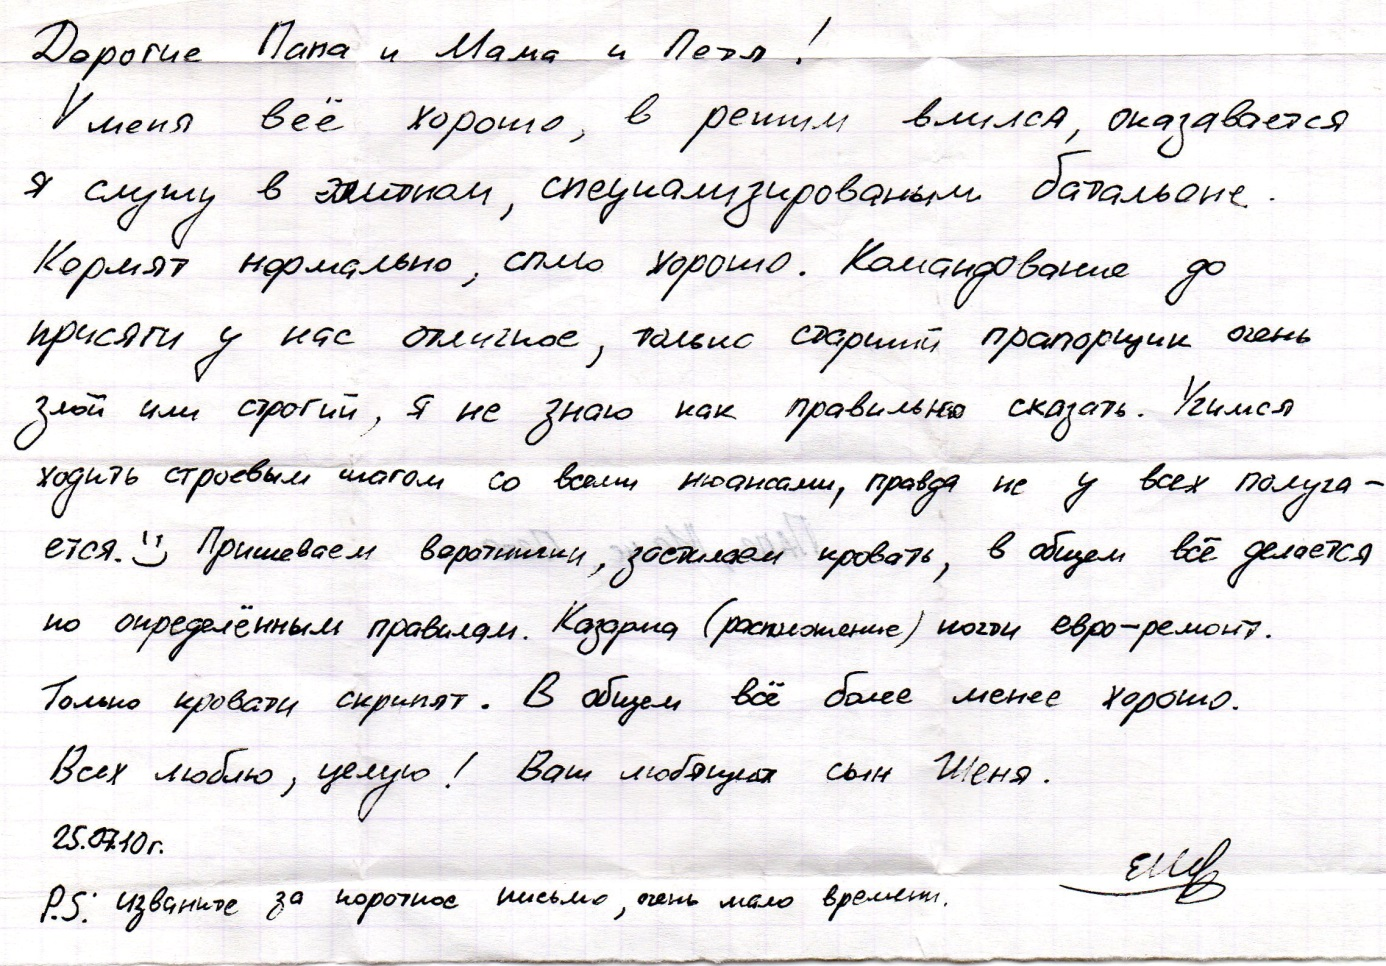 Дорогие Папа и Мама и Петя!
У меня всё хорошо, в режим влился, оказавается
я служу в элитном, специализированым батальоне.
Кормят нормально, сплю хорошо. Командование до
присяги у нас отличное, только старший прапорщик очень
злой или строгий, я не знаю как правильно сказать. Учимся
ходить строевым шагом со всеми нюансами, правда не у всех получа-
ется. Пришеваем воротнички, застилаем кровать, в общем всё делается
по определённым правилам. Казарма (расположение) почти евро-ремонт.
Только кровати скрипят. В общем всё более менее хорошо.
Всех люблю, целую! Ваш любящий сын Женя.
25.07.10г.
P.S: извените за короткое письмо, очень мало времени.